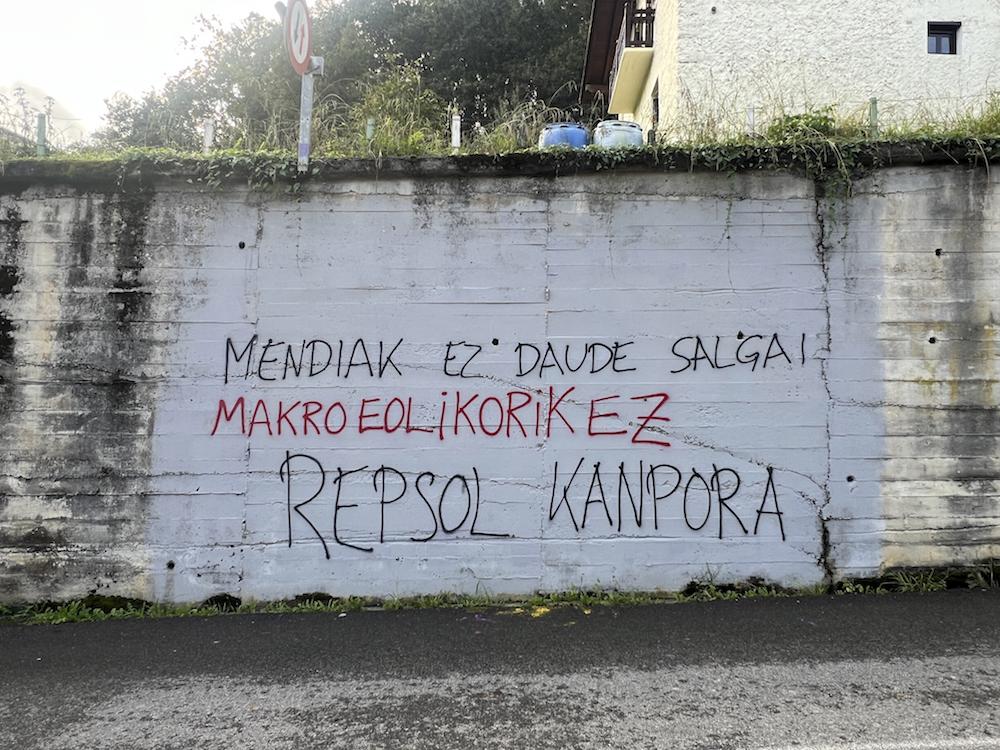 MENDIAK EZ DAUDE SALGAI
MAKROEOLiKORiK EZ
REPSOL KANPORA